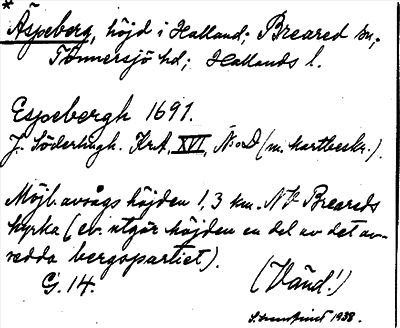 *
Äspeberg, höjd i Halland; Breared sn,
Tönnersjö hd; Hallands l.
Espebergh 1691.
J. Söderlingh. Krt. XVI, N:o D (m. kartbeskr.).
Möjl. avsågs höjden 1,3 km. NV Breareds
kyrka (ev. utgör höjden en del av det av-
sedda bergspartiet).
G. 14. (Vänd!)
1938.